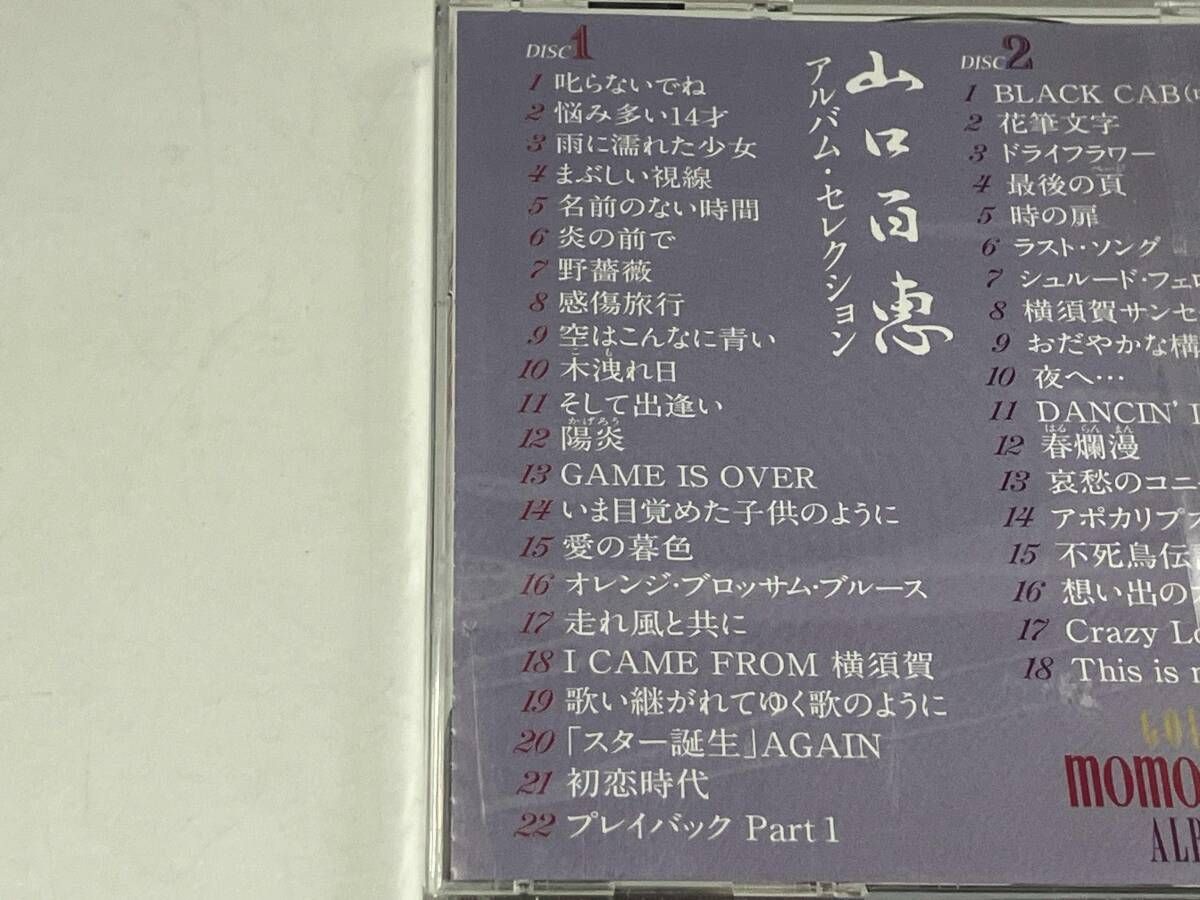 DISC 1
1 叱らないでね
2 悩み多い14才
3 雨に濡れた少女
4 まぶしい視線
5 名前のない時間
6 炎の前で
7 野薔薇
8 感傷旅行
9 空はこんなに青い
こも
10 木洩れ日
11 そして出逢い
かげろう
12 陽炎
13 GAME IS OVER
14 いま目覚めた子供のように
15 愛の暮色
16 オレンジ・ブロッサム・ブルース
17 走れ風と共に
18 I CAME FROM 横須賀
19 歌い継がれてゆく歌のように
20 「スター誕生」AGAIN
21 初恋時代
22 プレイバック Part 1
山口百恵
アルバム・セレクション
DISC 2
1 BLACK CAB
2 花筆文字
3 ドライフラワー
4 最後の頁
5 時の扉
6 ラスト・ソング
7 シュルード・フェロ
8 横須賀サンセ
9 おだやかな構
10 夜へ…
11 DANCIN'
はるらんまん
12 春爛漫
13 哀愁のコニ
14 アポカリプス
15 不死鳥伝
16 想い出の
17 Crazy Lo
18 This is
GOL
momo
ALB